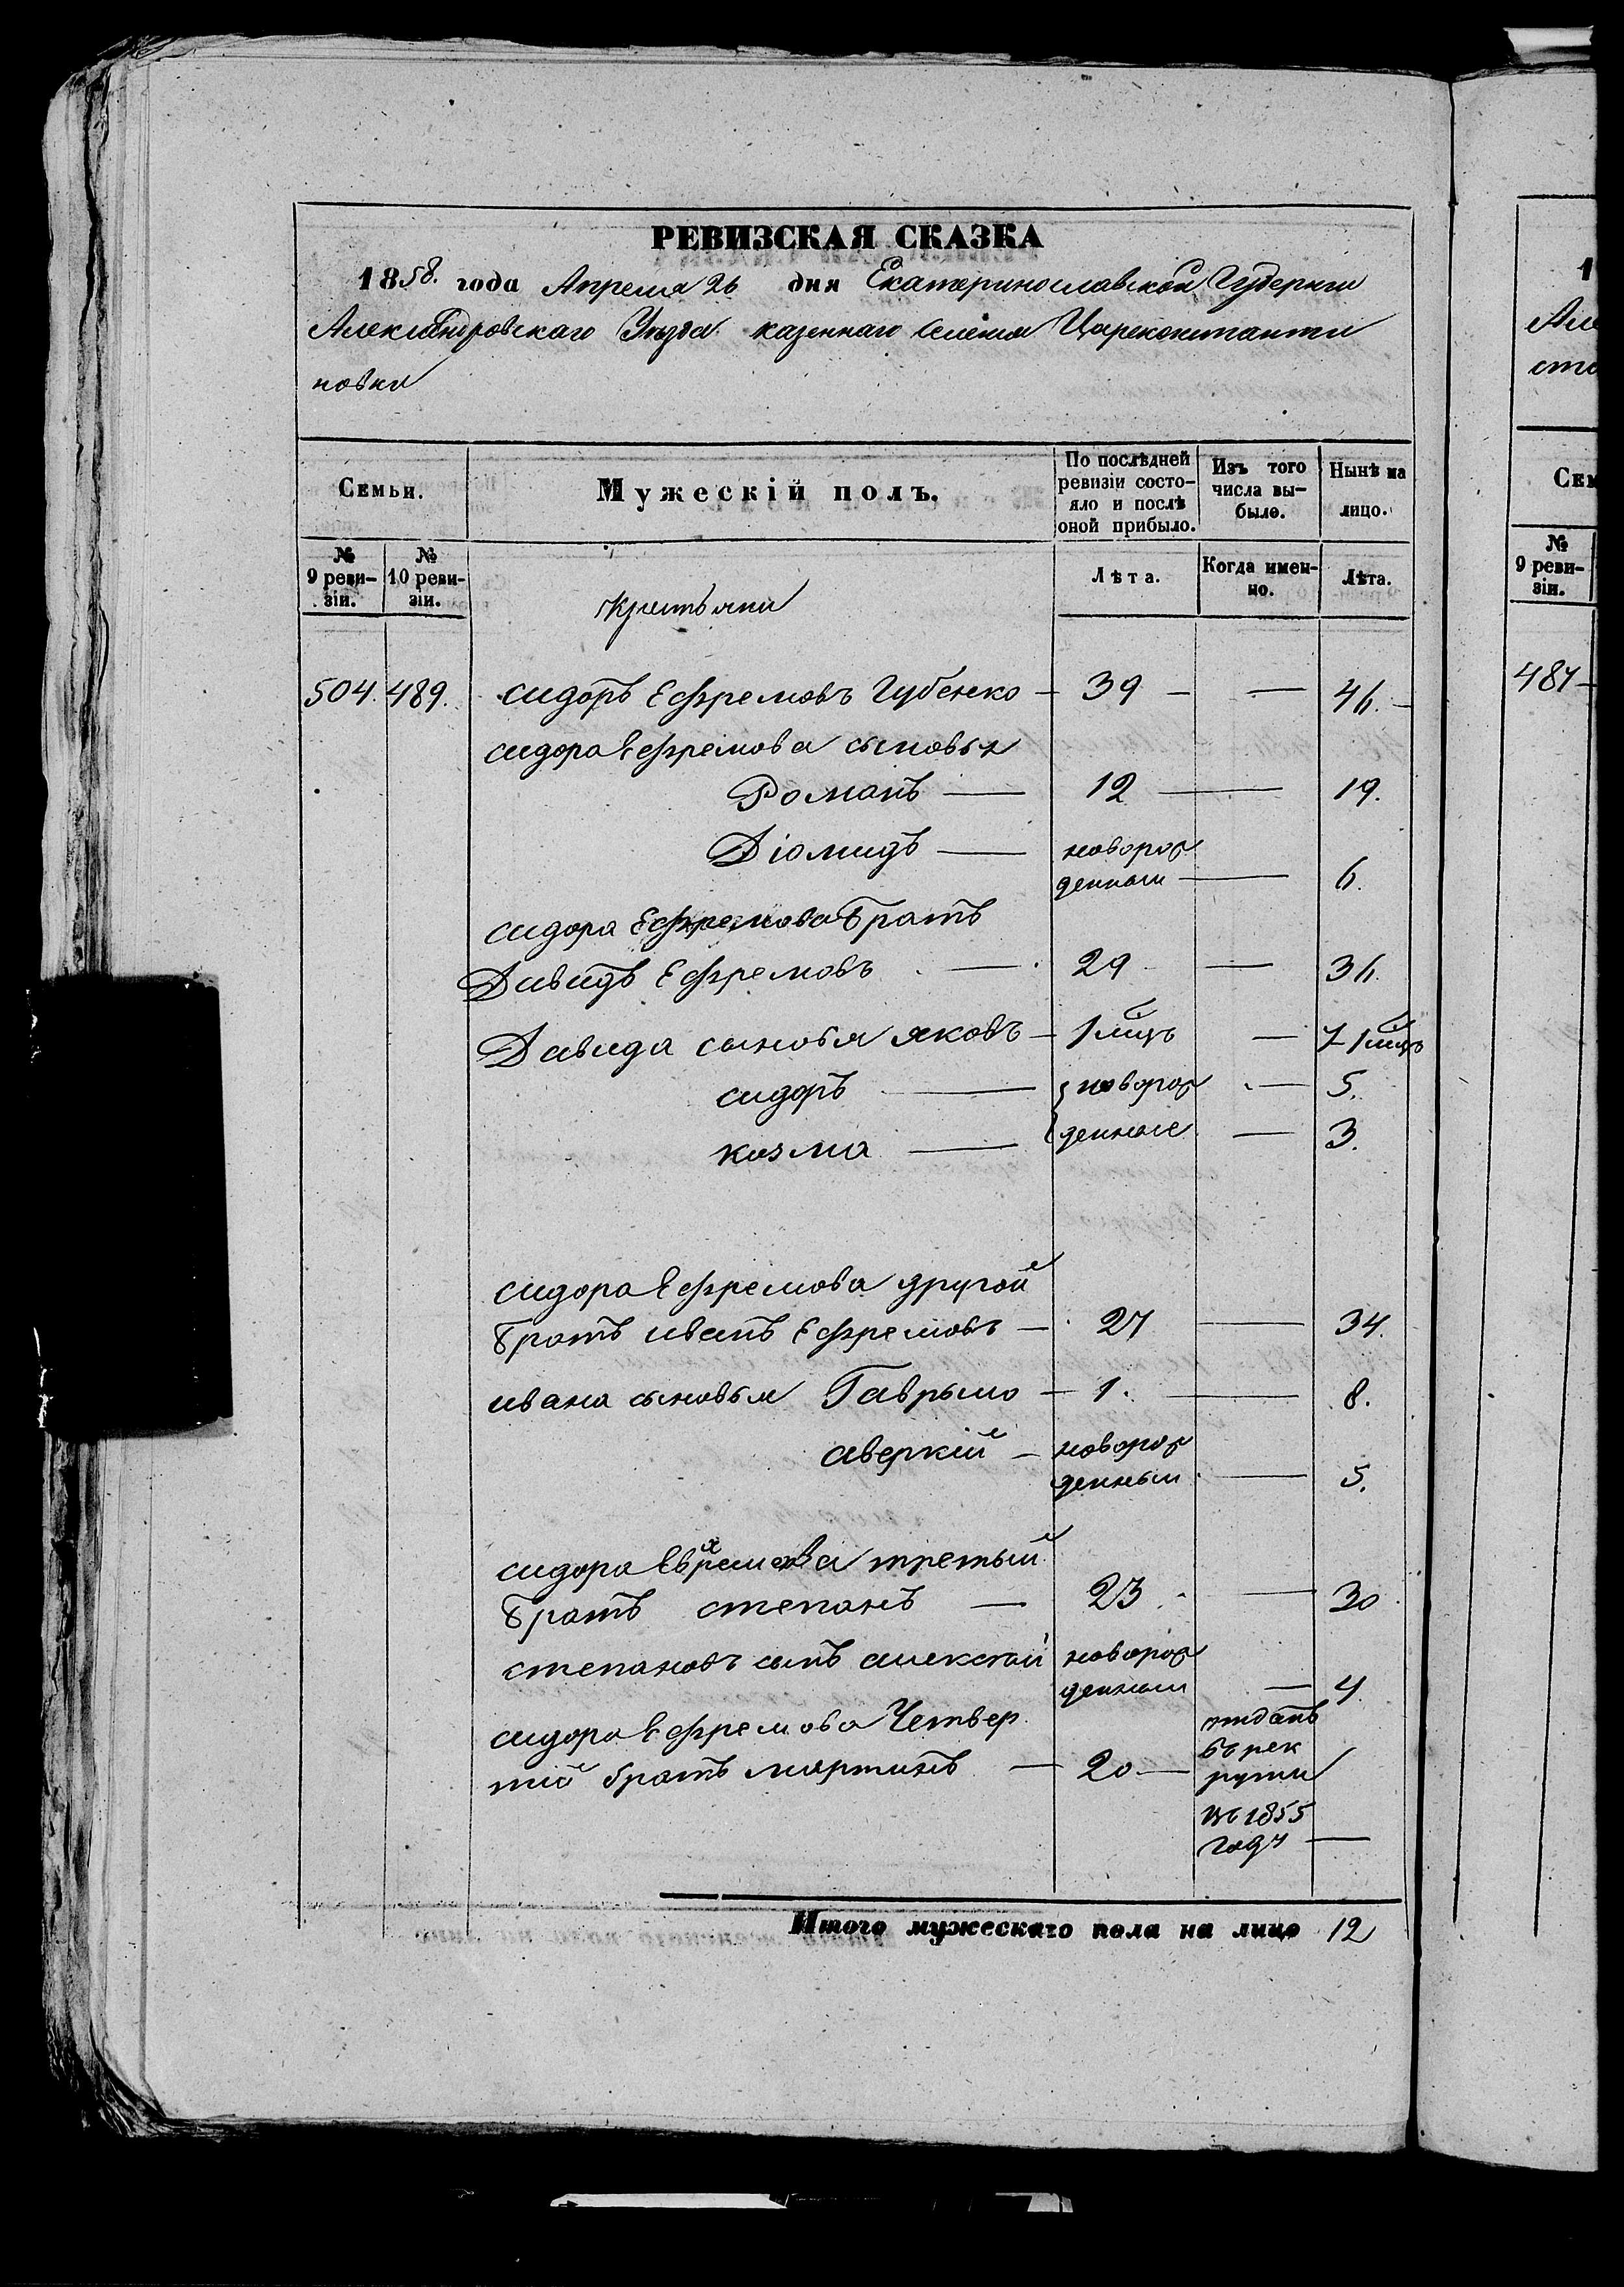 РЕВИЗСКАЯ СКАЗКА
1858. года Апреля 26 дня Екатеринославской Губернии
Александровскаго Уѣзда казеннаго селенія Цареконстанти
новки
Семьи.
Мужескій полъ.
По послѣдней
ревизіи состо-
яло и послѣ
оной прибыло.
Изъ того
числа вы-
было.
Нынѣ на
лицо.
№
9 реви-
зіи.
№
10 реви-
зіи.
Крестьяни
Лѣта.
Когда имен-
но.
Лѣта.
504. 489. сидоръ Ефремовъ Губенко — 39 — — 46. —
сидора Ефремова сыновья
Романъ — 12 — 19.
Діомидъ — новорож
денный — 6.
сидора Ефремова братъ
Давидъ Ефремовъ — 29 — 36.
Давида сыновья яковъ — 1 мцъ — 7 1 мцъ
сидоръ — новорож — 5.
козма — денные — 3.
сидора Ефремова другой
братъ иванъ Ефремовъ — 27 — 34.
ивана сыновья Гаврыло — 1. — 8.
аверкій — новорож
денный — 5.
сидора Ефремова третый
братъ степанъ — 23 — 30
степановъ сынъ алексѣй новорож
денный — 4.
сидора Ефремова Четвер
тій братъ мартинъ — 20 —
отданъ
въ рек
рути
въ 1855
году —
Итого мужескаго пола на лицо 12
1
Але
ста
Сем
№
9 реви-
зіи.
487 —